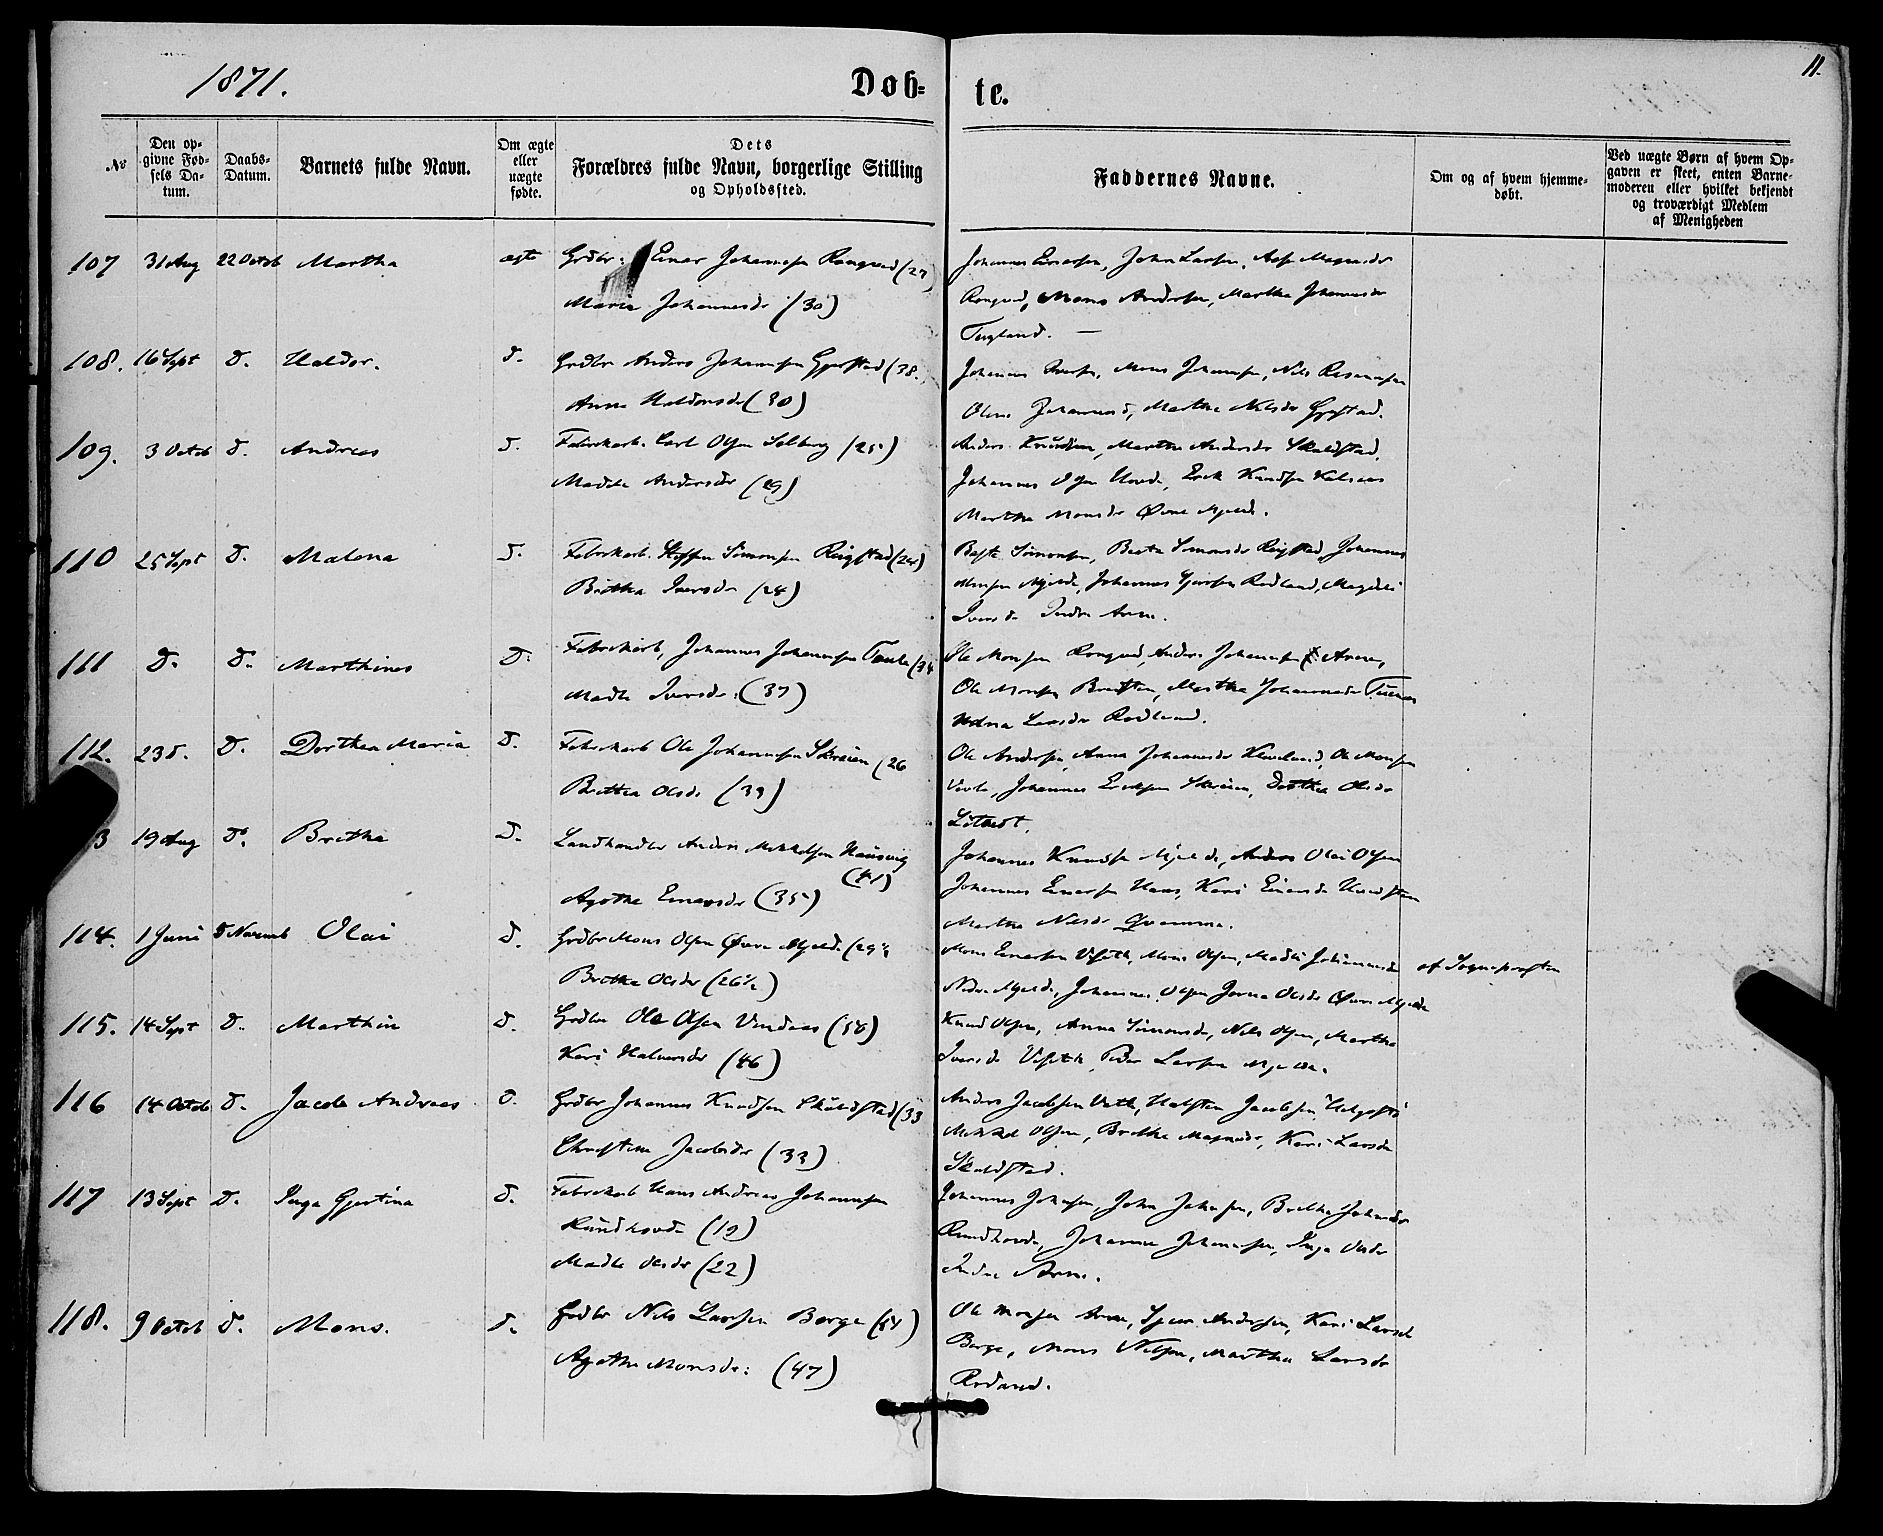 1871.
Døb-
te.
11.
No
Den op-
givne Fød-
sels Da-
tum.
Daabs-
Datum.
Barnets fulde Navn.
Om ægte
eller
uægte
fødte.
Dets
Forældres fulde Navn, borgerlige Stilling
og Opholdssted.
Faddernes Navne.
Om og af hvem hjemme-
døbt.
Ved uægte Børn af hvem Op-
gaven er skeet, enten Barne-
moderen eller hvilket bekjendt
og troværdigt Medlem
af Menigheden
107 31 Aug 22 Octob Martha ægte Grdbr: Einar Johannesen (27)
Maria Johannesdr (30)
Johannes Einarsen, John Larsen, Magnesdr
Mons Andersen, Martha Johannesdr
108. 16 Sept d. Haldor. d. Grdbr Anders Johannesen (38.
Anna Haldorsdr (30)
Johannes Mons Johannesen, Nils
Johannesd, Martha Nilsdr
109. 3 Octob d. Andreas d. Fabrikarb. Carl Olsen Solberg (25)
Madele Andersdr (29)
Anders Knudsen, Martha Andersdr Skuldstad,
Johannes Olsen Erik Knudsen
Martha Monsdr Øvre Mjelde.
110 25 Sept d. Malena d. Fabrikarb. Steffen Simonsen Ringstad (24)
Britha Iversdr (24)
Simonsen, Simonsdr Ringstad, Johannes
Monsen Mjelde, Johannes Rødland, Magdeli
Iversdr Indre Arne.
111 d. d. Marthines d. Fabrikarb, Johannes Johannesen (34
Madle Iversdr: (37)
Ole Monsen Anders Johannesen Arne,
Ole Monsen Martha Johannesdr
Larsdr Rødland.
112. 23 d. d. Dorthea Maria d. Fabrikarb Ole Johannesen Skreien (26
Britha Olsdr (39)
Ole Andersen, Anna Johannesdr Ole Monsen
Johannes Skreien, Dorthea Olsdr
3 19 Aug d. Britha d. Landhandler Anders Mikkelsen Hausvig
(41)
Agathe Einarsdr (35)
Johannes Knudsen Mjelde, Anders Olai Olsen
Johannes Einarsen Kari Einarsdr
Martha Nilsdr Qvamme.
114. 1 Juni 5 Novemb Olai d. Grdbr Mons Olsen Øvre Mjelde (29½
Britha Olsdr (26½)
Mons Einarsen Mons Olsen, Madli Johannesdr
Nedre Mjelde, Johannes Olsen Olsdr Øvre Mjelde
af Sognepresten
115. 14 Sept d. Marthin d. Grdbr Ole Olsen (50)
Kari Halvorsdr (46)
Knud Olsen, Anna Simonsdr, Nils Olsen, Martha
Iversdr Peder Larsen Mjelde.
116 14 Octob d. Jacob Andreas d. Grdbr Johannes Knudsen Skuldstad (33
Christine Jacobsdr (33)
Anders Jacobsen Halsten Jacobsen
Mikkel Olsen, Britha Magnesdr, Kari Larsdr
Skuldstad.
117 13 Sept d. Inga Gjertina d. Fabrikarb Hans Andreas Johannesen
Rundhovde (19)
Madle Olsdr (22)
Johannes Johnsen, John Johnsen, Britha Johnsdr
Rundhovde, Johanne Johannesen, Inga Olsdr
Indre Arne.
118. 9 Octob d. Mons. d. Grdbr Nils Larsen Borge (54)
Agathe Monsdr: (47)
Ole Monsen Arne, Andersen, Kari Larsdr
Borge, Mons Nilsen, Martha Larsdr